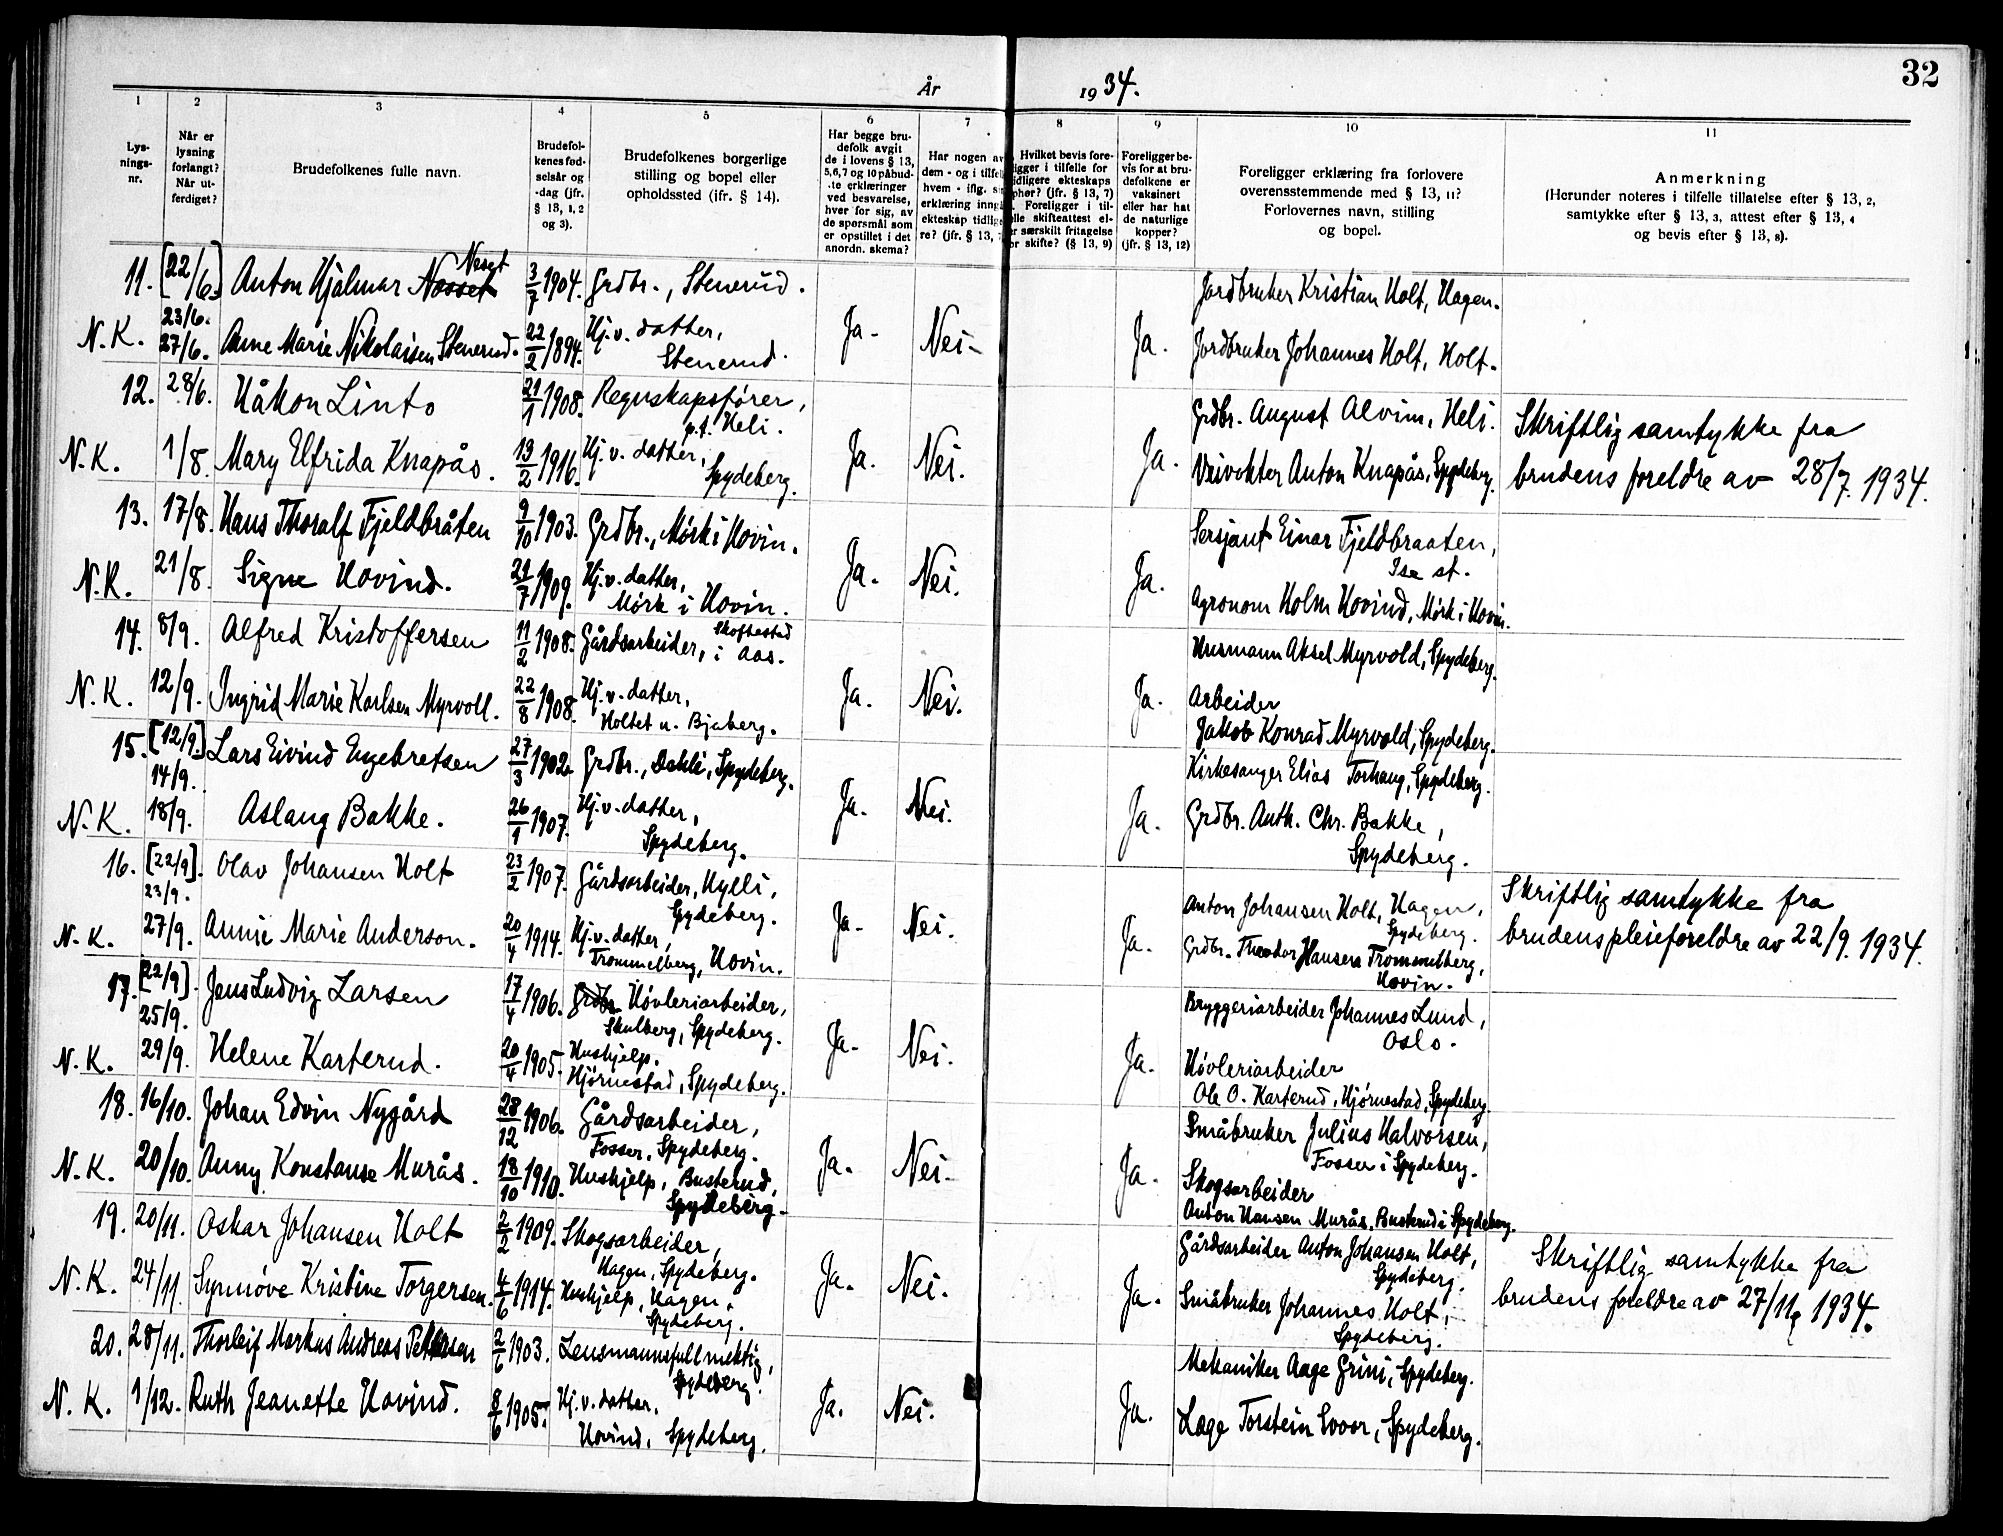 32
År 1934.
1 2 3 4 5 6 7 8 9 10 11
Lys-
nings-
nr.
Når er
lysning
forlangt?
Når ut-
ferdiget?
Brudefolkenes fulle navn.
Brudefol-
kenes fød-
selsår og
-dag (jfr.
§ 13, 1, 2
og 3).
Brudefolkenes borgerlige
stilling og bopel eller
opholdssted (ifr. § 14).
Har begge bru-
defolk avgit
de i lovens § 13,
5, 6, 7 og 10 påbud-
-te erklæringer
ved besvarelse,
hver for sig, av
de spørsmål som
er opstillet i det
anordn. skema?
Har nogen av
dem - og i tilfel
hvem - iflg. s
erklæring inngå
ekteskap tidlige
re? (jfr. § 13,
Hvilket bevis fore-
ligger i tilfelle for
tidligere ekteskaps
ophør? (jfr. § 13, 7)
Foreligger i til-
elle skifteattest el-
er særskilt fritagelse
or skifte? (§ 13, 9)
Foreligger be-
vis for at bru-
defolkene er
vaksinert
eller har hat
de naturlige
kopper?
(jfr. § 13, 12)
Foreligger erklæring fra forlovere
overensstemmende med § 13, 11?
Forlovernes navn, stilling
og bopel.
Anmerkning
(Herunder noteres i tilfelle tillatelse efter § 13, 2,
samtykke efter § 13, 3, attest efter § 13, 4
og bevis efter § 13, 8).
11. [22/6] Anton Hjalmar Nesset Neset 3/7 1904. Grdbr., Stenerud. Jordbruker Kristian Holt, Hagen.
23/6.
N.K. 27/6. Anne Marie Nikolaisen Stenerud. 22/2 1894. Hj.v. datter, Ja. Nei. Ja. Jordbruker Johannes Holt, Holt.
Stenerud.
12. 28/6. Håkon Linto 21/1 1908. Regnskapsfører, Grdbr. August Alvim, Heli. Skriftlig samtykke fra
p.t. Heli.
N.K. 1/8. Mary Elfrida Knapås. 13/2 1916. Hj.v. datter, Ja. Nei. Ja. Veivokter Anton Knapås, Spydeberg. brudens foreldre av 28/7. 1934.
Spydeberg.
13. 17/8. Hans Thoralf Fjeldbråten 9/10 1903. Grdbr., Mørk i Hovin. Sersjant Einar Fjeldbraaten,
Ise st.
N.K. 21/8. Signe Hovind. 21/7 1909. Hj.v. datter, Ja. Nei. Ja. Agronom Holm Hovind, Mørk i Hovin.
Mørk i Hovin.
14. 8/9. Alfred Kristoffersen 11/2 1908. Gårdsarbeider, Skoftestad i Aas. Husmann Aksel Myrvold, Spydeberg.
N.K. 12/9. Ingrid Marie Karlsen Myrvoll. 22/8 1908. Hj.v. datter, Ja. Nei. Ja. Arbeider
Holtet u. Bjaberg. Jakob Konrad Myrvold, Spydeberg.
15. [12/9] Lars Eivind Engebretsen 27/3 1902. Grdbr., Dahli, Spydeberg. Kirkesanger Elias Torhaug, Spydeberg.
14/9.
N.K. 18/9. Aslaug Bakke. 26/1 1907. Hj.v. datter, Ja. Nei. Ja. Grdbr. Anth. Chr. Bakke,
Spydeberg. Spydeberg.
16. [22/9]. Olav Johansen Holt 23/2 1907. Gårdsarbeider, Hylli, Anton Johansen Holt, Hagen, Skriftlig samtykke fra
23/9. Spydeberg. Spydeberg.
N.K. 27/9. Annie Marie Anderson. 20/4 1914. Hj.v. datter, Ja. Nei. Ja. Grdbr. Theodor Hansen Trommelberg, brudens pleieforeldre av 22/9. 1934.
Trommelberg, Hovin. Hovin.
17. [22/9]. Jens Ludvig Larsen 17/4 1906. Grdbr Høvleriarbeider, Bryggeriarbeider Johannes Lund,
25/9. Skulberg, Spydeberg. Oslo.
N.K. 29/9. Helene Karterud. 20/4 1905. Hushjelp. Ja. Nei. Ja. Høvleriarbeider
Hjørnestad, Spydeberg. Ole O. Karterud, Hjørnestad, Spydeberg.
18. 16/10. Johan Edvin Nygård 28/12 1906. Gårdsarbeider, Småbruker Julius Halvorsen,
Fosser, Spydeberg. Fosser i Spydeberg.
N.K. 20/10. Anny Konstanse Murås. 18/10 1910. Hushjelp, Busterud, Ja. Nei. Ja. Skogsarbeider
Spydeberg. Anton Hansen Murås, Busterud i Spydeberg.
19. 20/11. Oskar Johansen Holt 2/2 1909. Skogsarbeider, Gårdsarbeider Anton Johansen Holt, Skriftlig samtykke fra
Hagen, Spydeberg. Spydeberg.
N.K. 24/11. Synnøve Kristine Torgersen. 4/6 1914. Hushjelp, Hagen, Ja. Nei. Ja. Småbruker Johannes Holt, brudens foreldre av 27/11 1934.
Spydeberg. Spydeberg.
20. 28/11. Thorleif Markus Andreas Pettersen 2/6 1903. Lensmannsfullmektig, Mekaniker Aage Grini, Spydeberg.
Spydeberg.
N.K. 1/12. Ruth Jeanette Hovind. 8/6 1905. Hj.v. datter. Ja. Nei. Ja. Læge Torstein Svor, Spydeberg.
Hovind, Spydeberg.